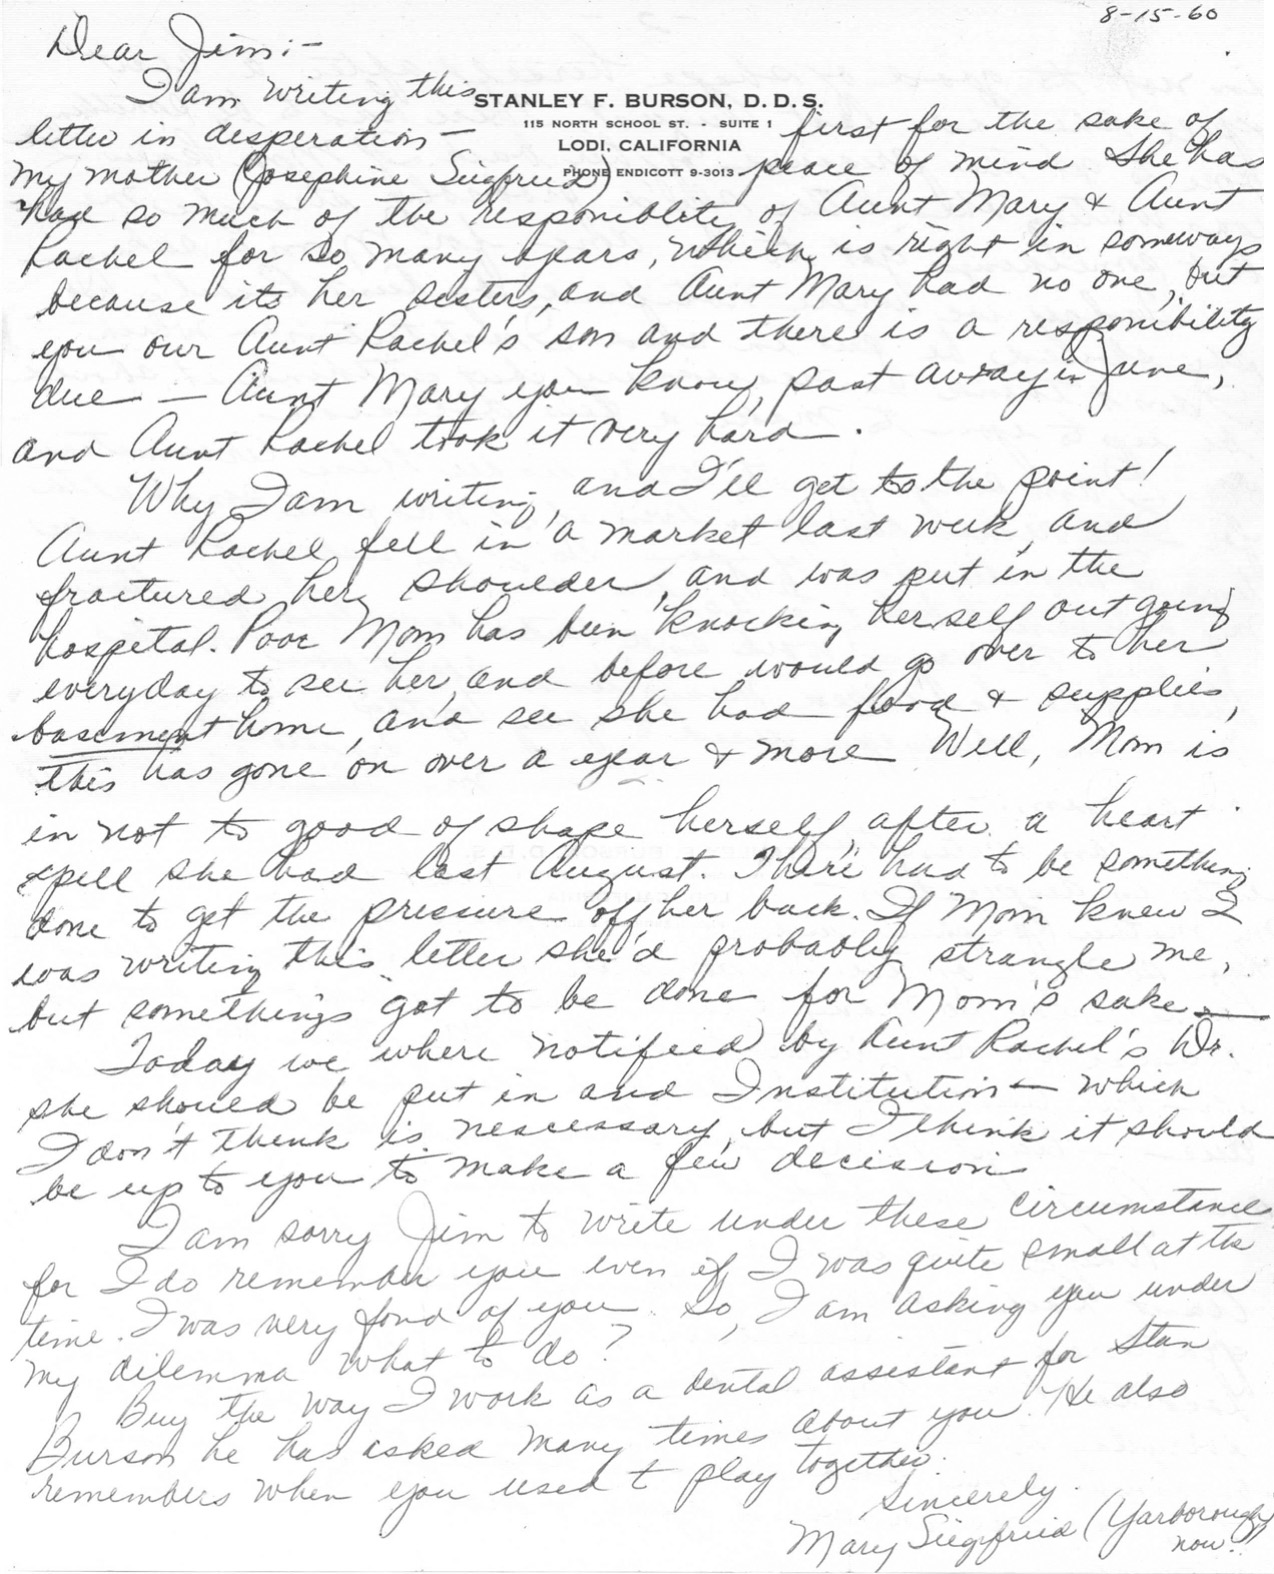 8-15-60
Dear Jim:-
I am writing this
STANLEY F. BURSON, D.D.S.
115 NORTH SCHOOL ST. - SUITE 1
LODI, CALIFORNIA
PHONE ENDICOTT 9-3013
letter in desperation - first for the sake of
my mother (Josephine Siegfried) peace of mind She has
had so much of the responsiblity of Aunt Mary & Aunt
Rachel for so many years, which is right in someways
because its her sisters, and Aunt Mary had no one, but
you our Aunt Rachel's son and there is a responibility
due - Aunt Mary you know, past away in June,
and Aunt Rachel took it very hard.
Why I am writing, and I'll get to the point!
Aunt Rachel fell in a market last week, and
fractured her shoulder, and was put in the
hospital. Poor Mom has been knocking herself out going
everyday to see her, and before would go over to her
basement home, and see she had food & supplies,
this has gone on over a year & more Well, Mom is
in not to good of shape herself, after a heart
spell she had last August. There had to be something
done to get the pressure off her back. If Mom knew I
was writing this letter she'd probably strangle me,
but something's got to be done for Mom's sake -
Today we where notified by Aunt Rachel's Dr.
she should be put in and Institution - which
I don't think is nescessary, but I think it should
be up to you to make a few decision
I am sorry Jim to write under these circumstance
for I do remember you even if I was quite small at the
time. I was very fond of you. So, I am asking you under
my dilemma what to do?
Buy the way I work as a dental assistant for Stan
Burson he has asked many times about you. He also
remembers when you used t play together.
Sincerely
Mary Siegfried (Yarborough
now!)